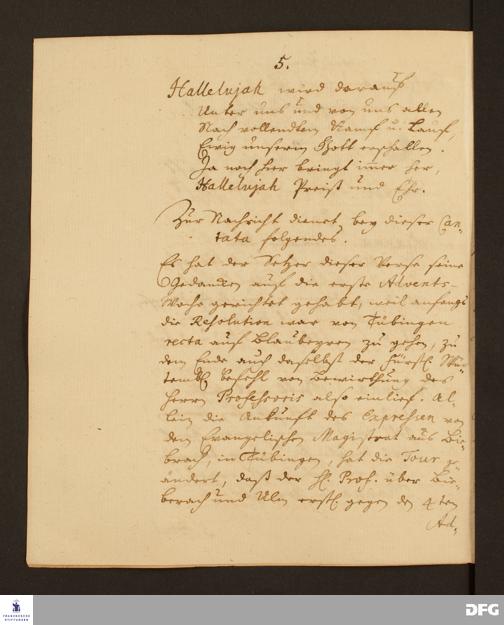 5.
Hallelujah wird darauf
Unter uns und von uns allen
Nach vollendtem Kampf u. Lauf,
Ewig unserm Gott erschallen.
Ja noch hier bringt immer her,
Hallelujah Preiß und Ehr.
Zur Nachricht dienet bey dieser Can-
tata folgendes.
Es hat der Setzer dieser Verse seine
Gedancken auf die erste Advents-
Woche gerichtet gehabt, weil anfangs
die Resolution war von Tübingen
recta auf Blaubeyren zu gehen, zu
dem Ende auch daselbst der Fürstl. Wür
temb. befehl von Bewirthung des
Herrn Professoris also einlief. Al-
lein die Ankunft des Expressen von
dem Evangelischen Magistrat aus Bi-
brach, in Tübingen, hat die Tour ge
ändert, daß der H. Prof. über Bi-
berach und Ulm erstl. gegen den 4ten
Ad-
FRANCKESCHE
STIFTUNGEN
DFG